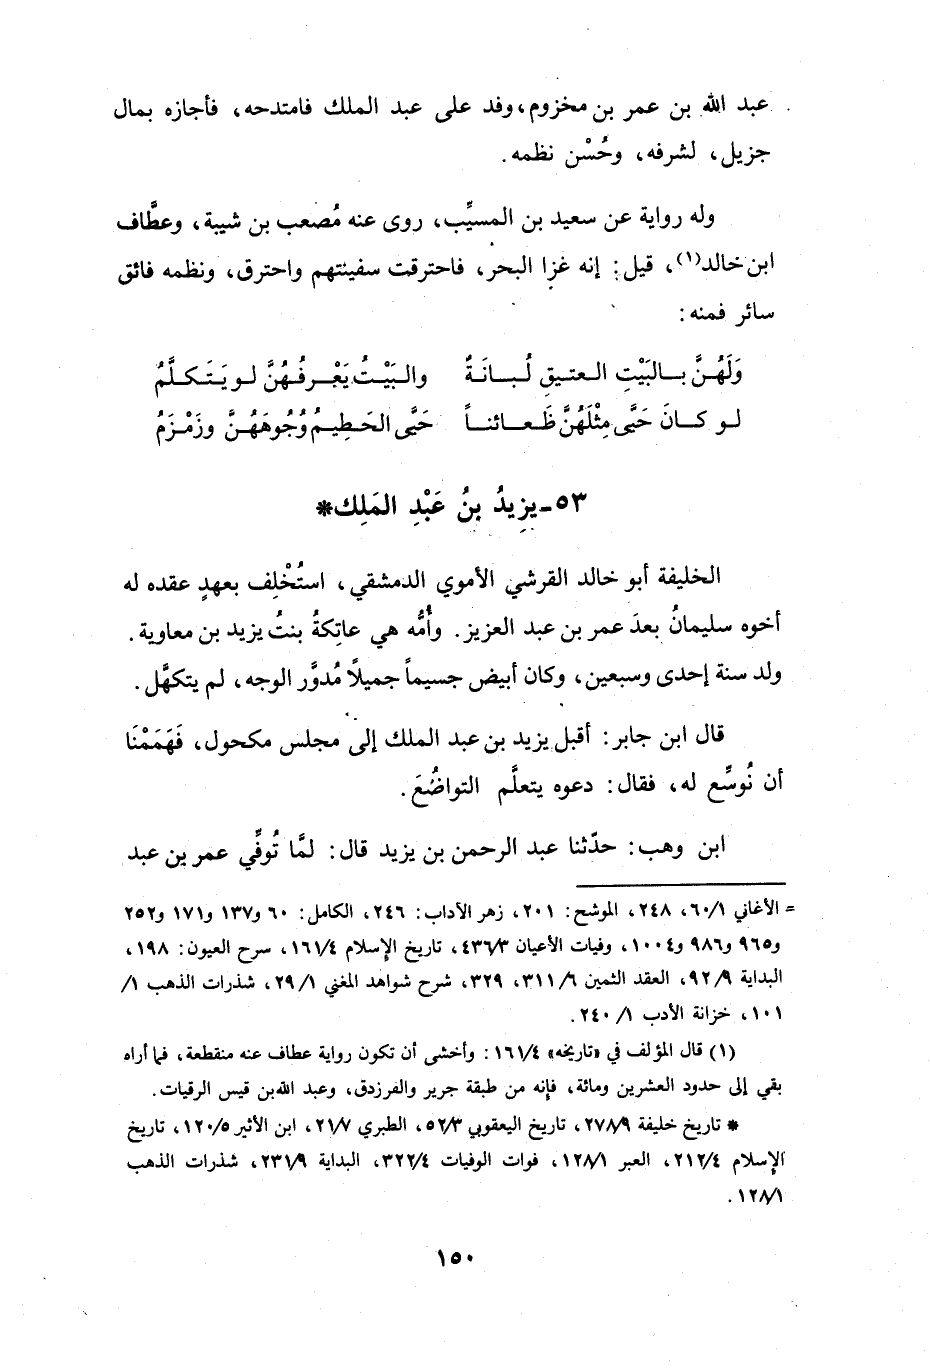 عبد الله بن عمر بن مخزوم، وفد على عبد الملك فامتدحه، فأجازه بمال
جزيل، لشرفه، وحُسْن نظمه.
وله رواية عن سعيد بن المسيِّب، روى عنه مُصعب بن شيبة، وعطَّاف
ابن خالد(١)، قيل: إنه غزا البحر، فاحترقت سفينتهم واحترق، ونظمه فائق
سائر فمنه:
وَلَهُنَّ بالبَيْتِ العتيقِ لُبانَةٌ والبَيْتُ يَعْرِفُهُنَّ لو يَتَكلَّمُ
لو كانَ حَيَّى مِثْلَهُنَّ ظَعائناً حَيَّى الحَطِيمُ وُجُوهَهُنَّ وزَمْزَمُ
٥٣ - يزِيدُ بنُ عَبْدِ المَلِك*
الخليفة أبو خالد القرشي الأموي الدمشقي، استُخْلِف بعهدٍ عقده له
أخوه سليمانُ بعدَ عمر بن عبد العزيز. وأُمُّه هي عاتِكةُ بنتُ يزيد بن معاوية.
ولد سنة إحدى وسبعين، وكان أبيض جسيماً جميلاً مُدوَّر الوجه، لم يتكهَّل.
قال ابن جابر: أقبل يزيد بن عبد الملك إلى مجلس مكحول، فَهَمَمْنَا
أن نُوسِّع له، فقال: دعوه يتعلَّم التواضُعَ.
ابن وهب: حدّثنا عبد الرحمن بن يزيد قال: لمَّا تُوفِّي عمر بن عبد
= الأغاني ٦٠/١، ٢٤٨، الموشح: ٢٠١، زهر الآداب: ٢٤٦، الكامل: ٦٠ و١٣٧ و١٧١ و٢٥٢
و٩٦٥ و٩٨٦ و١٠٠٤، وفيات الأعيان ٤٣٦/٣، تاريخ الإسلام ١٦١/٤، سرح العيون: ١٩٨،
البداية ٩٢/٩، العقد الثمين ٣١١/٦، ٣٢٩، شرح شواهد المغني ٢٩/١، شذرات الذهب ١/
١٠١، خزانة الأدب ٢٤٠/١.
(١) قال المؤلف في «تاريخه» ١٦١/٤: وأخشى أن تكون رواية عطاف عنه منقطعة، فما أراه
بقي إلى حدود العشرين ومائة، فإنه من طبقة جرير والفرزدق، وعبد الله بن قيس الرقيات.
* تاريخ خليفة ٢٧٨/٩، تاريخ اليعقوبي ٥٢/٣، الطبري ٢١/٧، ابن الأثير ١٢٠/٥، تاريخ
الإسلام ٢١٢/٤، العبر ١٢٨/١، فوات الوفيات ٣٢٢/٤، البداية ٢٣١/٩، شذرات الذهب
١٢٨/١.
١٥٠